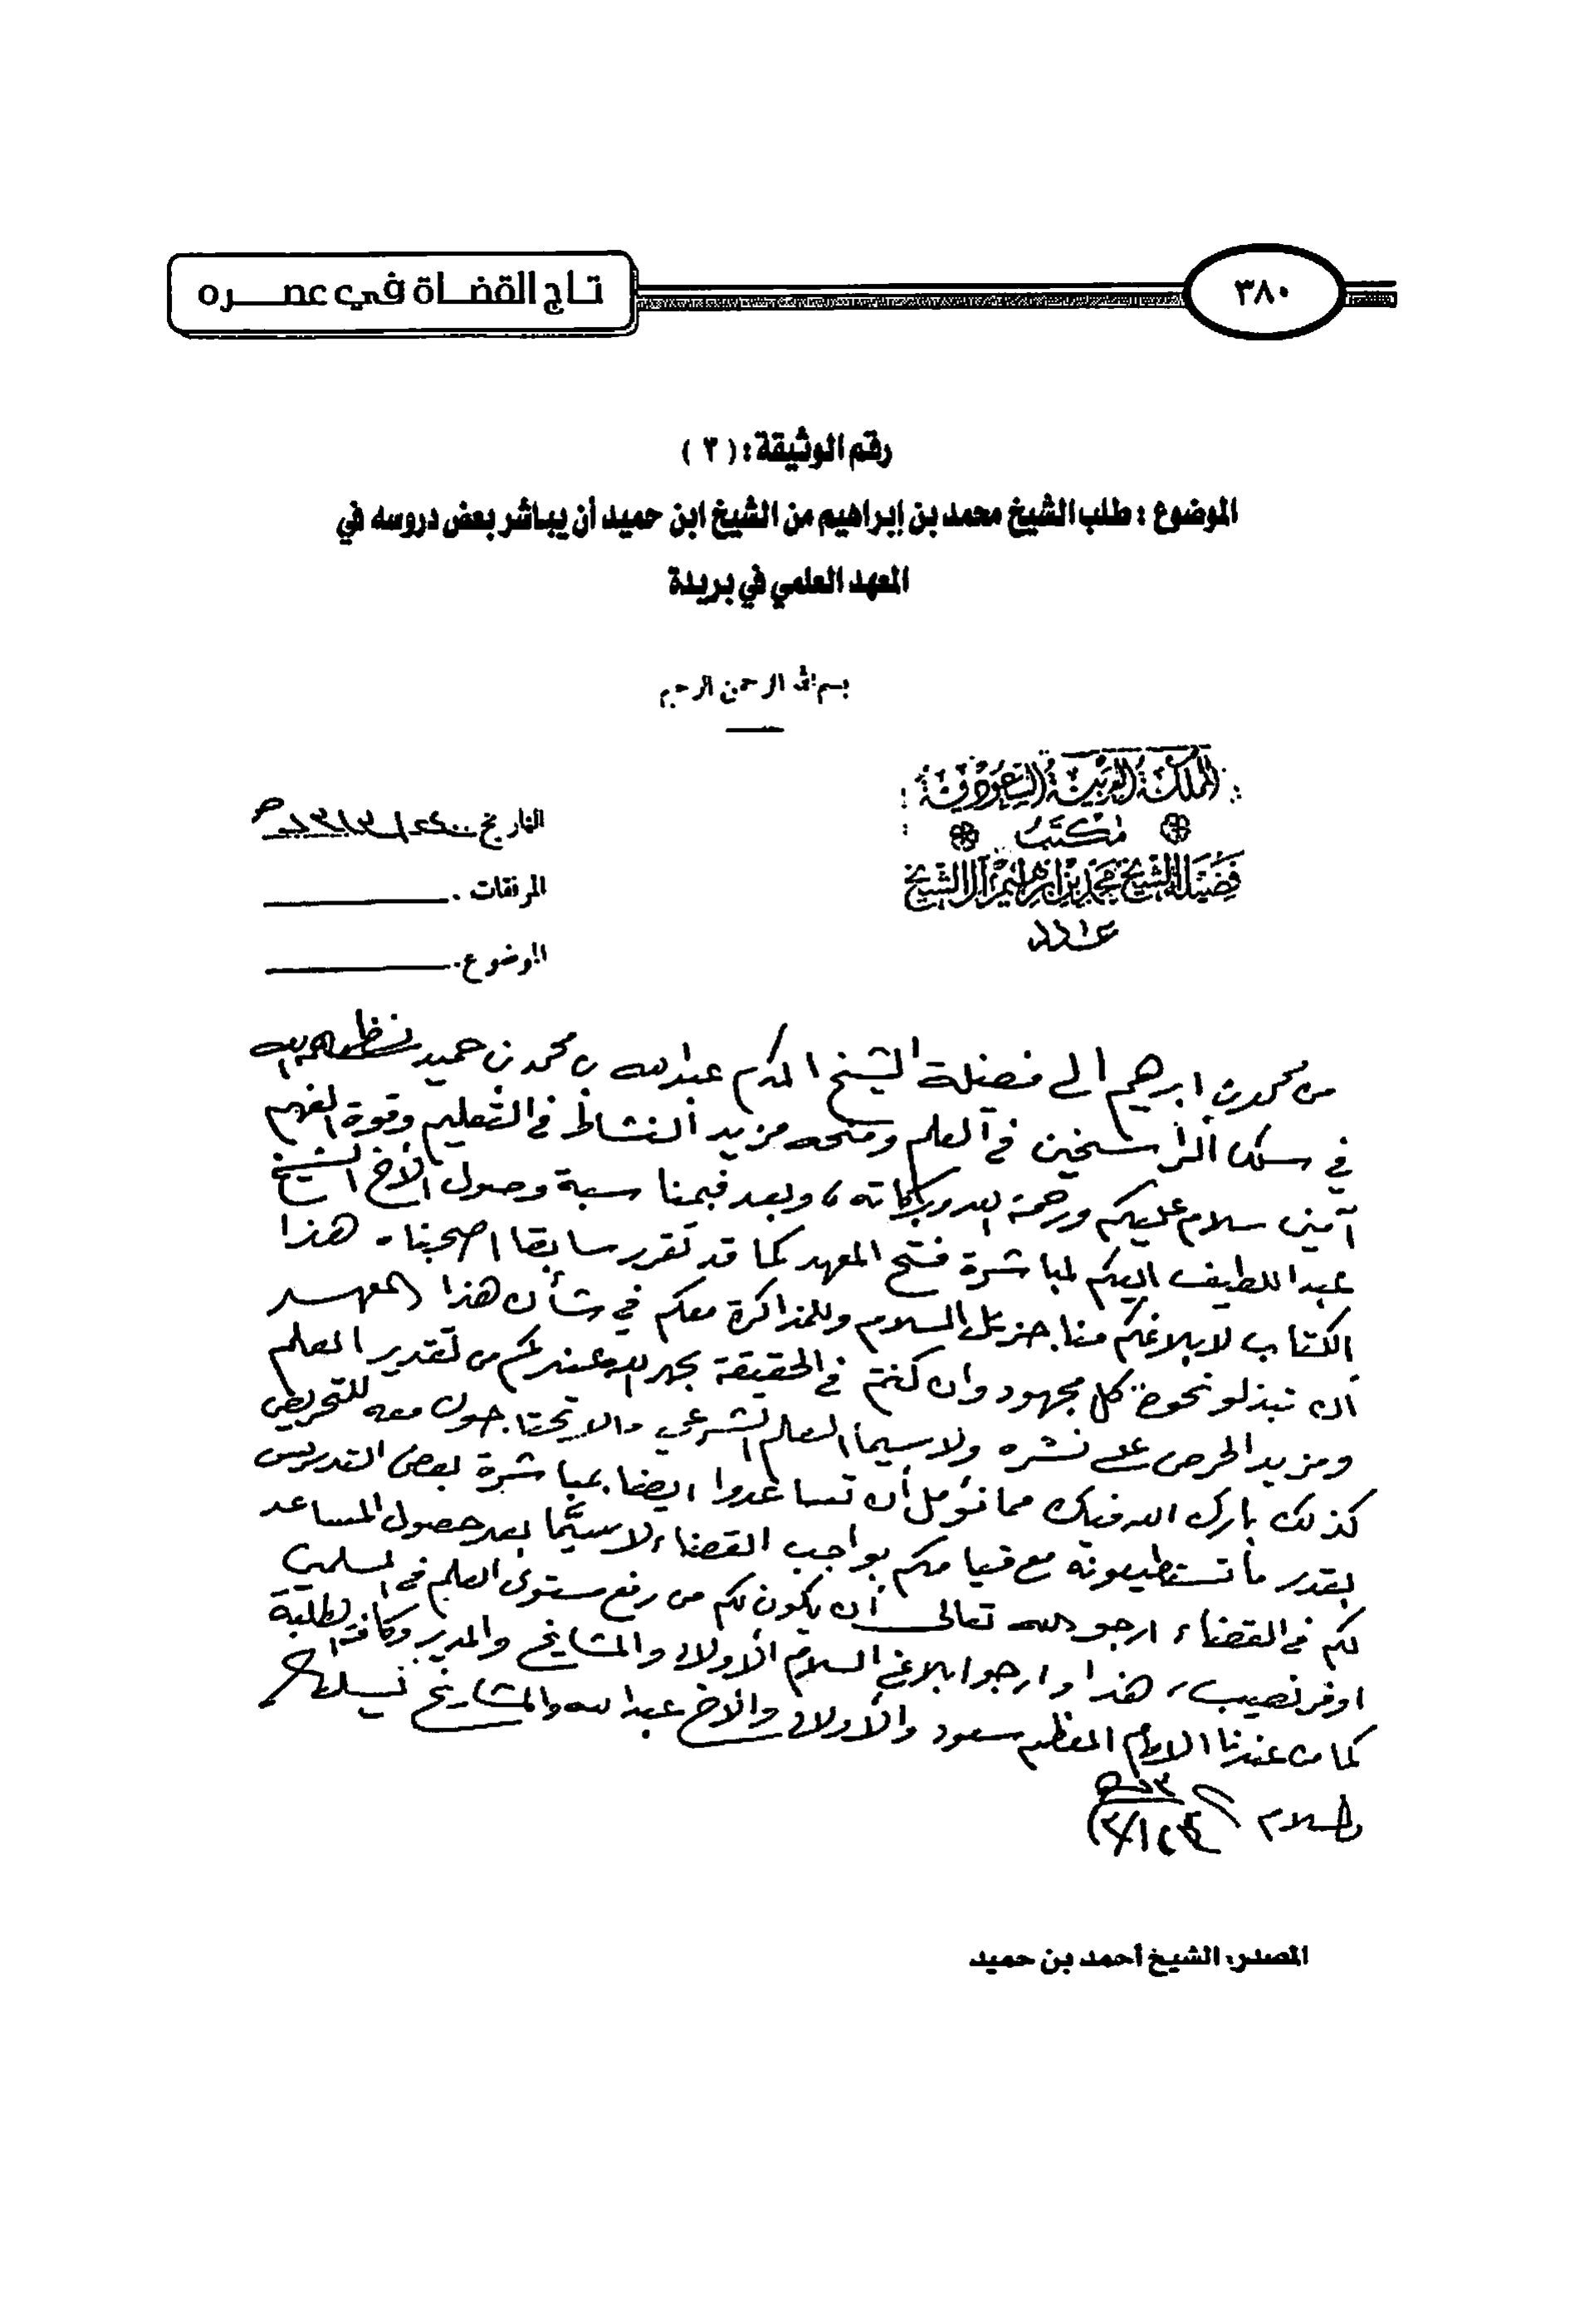 ٣٨٠
تاج القضاة في عصره
رقم الوثيقة: (٣)
الموضوع: طلب الشيخ محمد بن إبراهيم من الشيخ ابن حميد أن يباشر بعض دروسه في
المعهد العلمي في بريدة
بسم الله الرحمن الرحيم
المملكة العربية السعودية
مكتب
فضيلة الشيخ محمد بن إبراهيم آل الشيخ
عدد
التاريخ
المرفقات
الموضوع
من محمد بن ابرهيم الى فضيلة الشيخ المكرم عبدالله بن محمد بن حميد نظمه الله
في سلك الراسخين في العلم ومنحه مزيد النشاط في التعليم وقوة الفهم
آمين سلام عليكم ورحمة الله وبركاته، وبعد فبمناسبة وصول الأخ الشيخ
عبداللطيف اليكم لمباشرة فتح المعهد كما قد تقرر سابقا اصحبناه هذا
الكتاب لابلاغكم منا جزيل السلام وللمذاكرة معكم في شأن هذا المعهد
ان تبذلو نحوه كل مجهود وان كنتم في الحقيقة بحمد الله عندكم من تقدير العلم
ومزيد الحرص على نشره ولا سيما العلم الشرعي مالا تحتاجون معه للتحريض
كذلك بارك الله فيك مما نؤمل أن تساعدوا ايضا بمباشرة بعض التدريس
بقدر ما تستطيعونه مع قيامكم بواجب القضاء لا سيَّما بعد حصول المساعد
لكم في القضاء ارجو الله تعالى أن يكون لكم من رفع مستوى العلم في المسلمين
اوفر نصيب، هذا وارجو ابلاغ السلام الأولاد والمشايخ والمدير وكافة الطلبة
كما من عندنا الامام المعظم سعود والأولاد والأخ عبدالله والمشايخ
والسلام
المصدر: الشيخ أحمد بن حميد